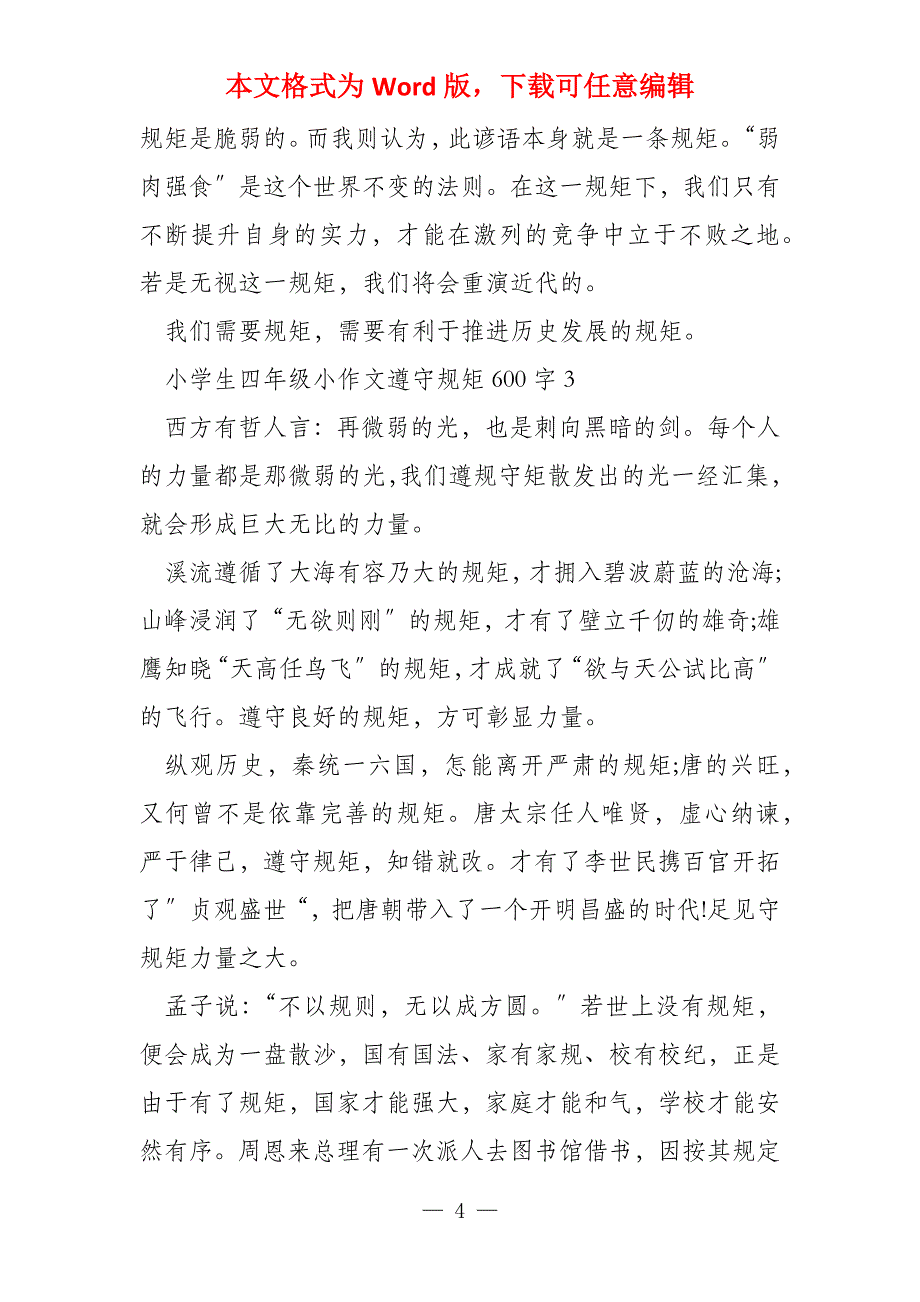 本文格式为 Word 版，下载可任意编辑
规矩是脆弱的。而我则认为，此谚语本身就是一条规矩。“弱
肉强食″是这个世界不变的法则。在这一规矩下，我们只有
不断提升自身的实力，才能在激列的竞争中立于不败之地。
若是无视这一规矩，我们将会重演近代的。
我们需要规矩，需要有利于推进历史发展的规矩。
小学生四年级小作文遵守规矩 600 字 3
西方有哲人言：再微弱的光，也是刺向黑暗的剑。每个人
的力量都是那微弱的光,我们遵规守矩散发出的光一经汇集，
就会形成巨大无比的力量。
溪流遵循了大海有容乃大的规矩，才拥入碧波蔚蓝的沧海;
山峰浸润了“无欲则刚″的规矩，才有了壁立千仞的雄奇;雄
鹰知晓“天高任鸟飞″的规矩，才成就了“欲与天公试比高″
的飞行。遵守良好的规矩，方可彰显力量。
纵观历史，秦统一六国，怎能离开严肃的规矩;唐的兴旺，
又何曾不是依靠完善的规矩。唐太宗任人唯贤，虚心纳谏，
严于律己，遵守规矩，知错就改。才有了李世民携百官开拓
了″贞观盛世“，把唐朝带入了一个开明昌盛的时代!足见守
规矩力量之大。
孟子说：“不以规则，无以成方圆。″若世上没有规矩，
便会成为一盘散沙，国有国法、家有家规、校有校纪，正是
由于有了规矩，国家才能强大，家庭才能和气，学校才能安
然有序。周恩来总理有一次派人去图书馆借书，因按其规定
— 4 —